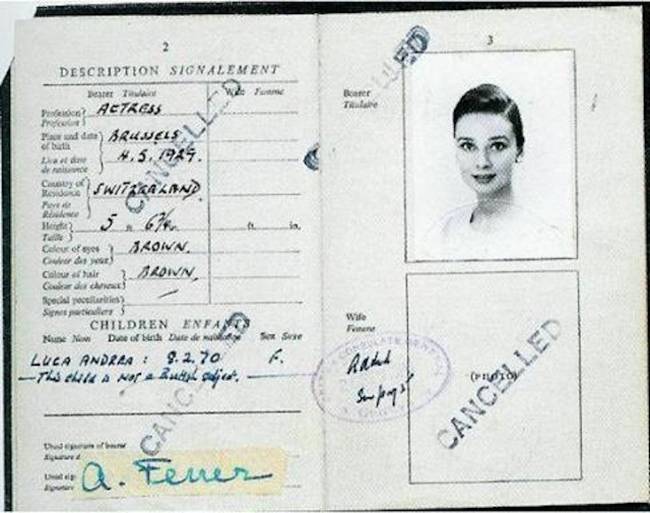 2
DESCRIPTION SIGNALEMENT
Bearer Titulaire Wife Femme
Profession ACTRESS
Profession
Place and date of birth BRUSSELS
Lieu et date de naissance 4.5.1929.
Country of Residence SWITZERLAND
Pays de Résidence
Height 5 ft. in.
Taille
Colour of eyes BROWN.
Couleur des yeux
Colour of hair BROWN.
Couleur des cheveux
Special peculiarities
Signes particuliers
CHILDREN ENFANTS
Name Nom Date of birth Date de naissance Sex Sexe
LUCA ANDREA: 8.2.70 F.
This child is not a British subject.
Usual signature of bearer
Signature
Usual
Signature
A. Ferrer
CANCELLED
CANCELLED
3
Bearer
Titulaire
CANCELLED
Wife
Femme
CONSULATE
(PHOTO)
CANCELLED